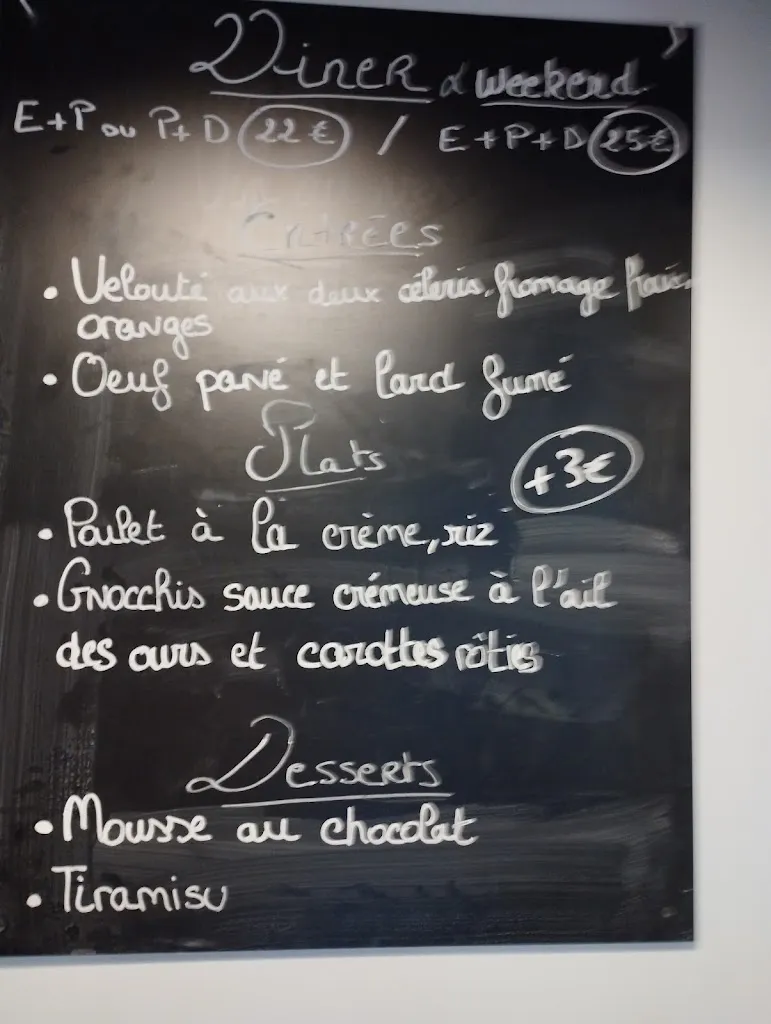 Diner & weekend
E+P ou P+D 22€ / E+P+D 25€
Entrées
• Velouté aux deux céleris, fromage frais,
oranges
• Oeuf pané et lard fumé
Plats +3€
• Poulet à la crème, riz
• Gnocchis sauce crémeuse à l'ail
des ours et carottes rôties
Desserts
• Mousse au chocolat
• Tiramisu